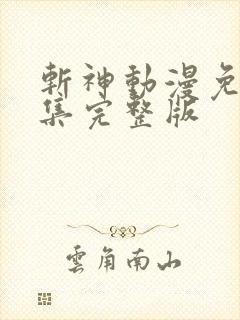 斬神動漫免
集完整版
雲角南山